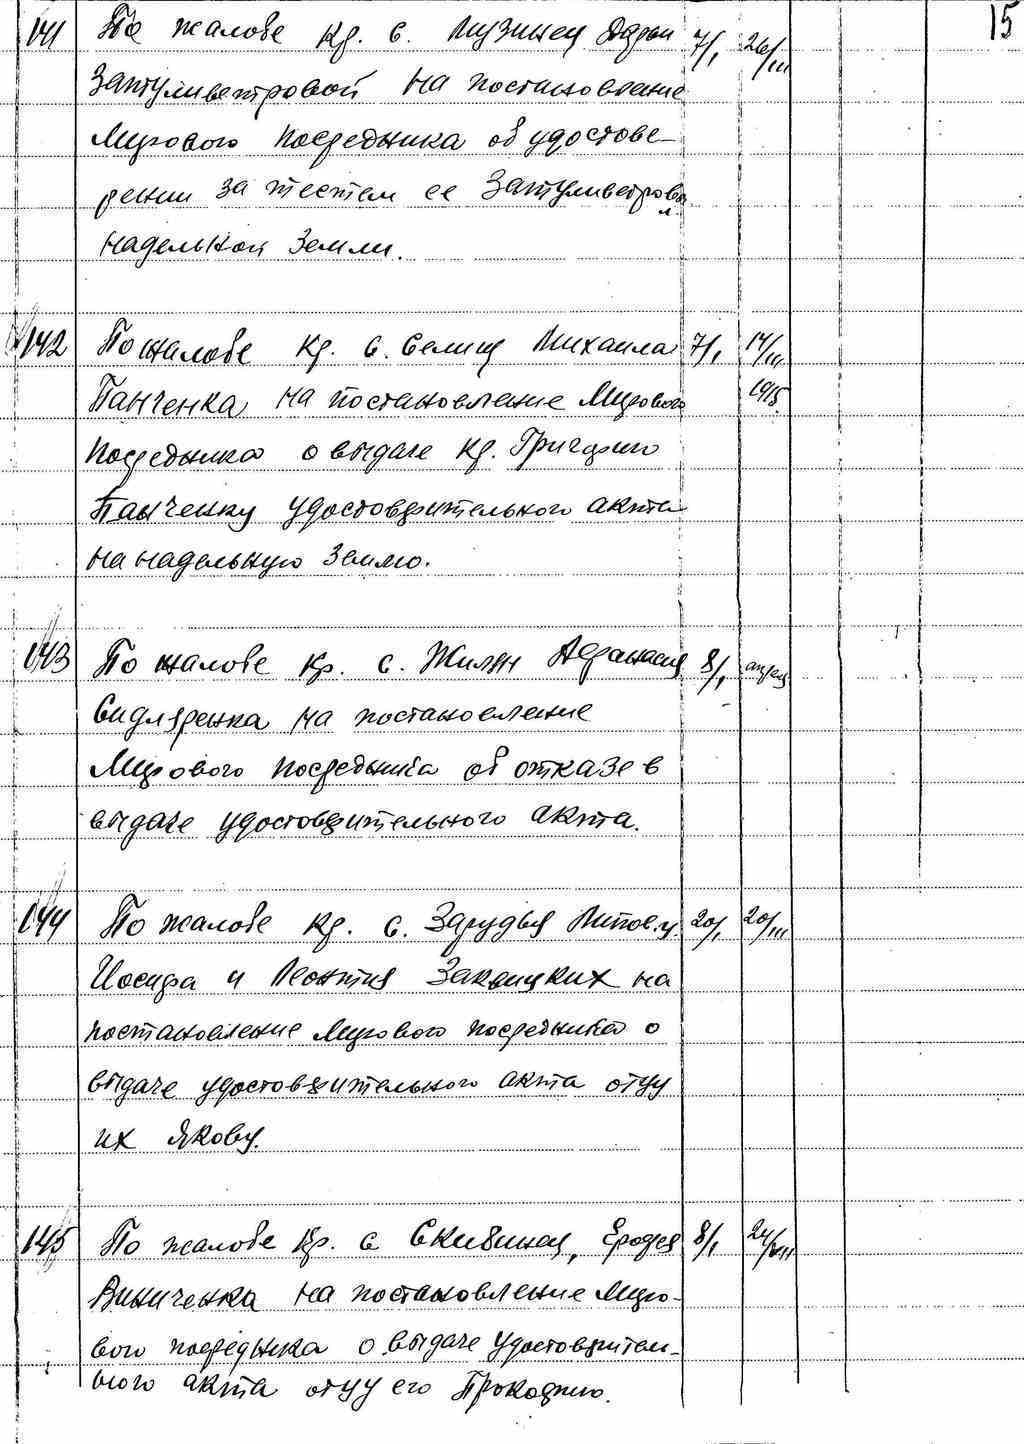 15
141 По жалове кр. с. Пузинец Дарьи 7/I 26/III
Затуливетровой на постановление
Мирового Посредника об удостове-
рении за тестем ее Затуливетровым
надельной земли.
142 По жалобе кр. с. Селищ Михаила 7/I 14/III
Панченка на постановление Мирового 1915.
Посредника о выдаче кр. Григорию
Панченку удостоверительного акта
на надельную землю.
143 По жалобе кр. с. Жилян Афанасия 8/I апрель
Скляренка на постановление
Мирового Посредника об отказе в
выдаче удостоверительного акта.
144 По жалобе кр. с. Зарудья Липов.у. 20/I 20/III
Иосифа и Леонтия на
постановление Мирового посредника о
выдаче удостоверительного акта отцу
их Якову.
145 По жалобе кр. с Скибинец, Ерофея 8/I
Виниченка на постановление Миро-
вого посредника о выдаче удостоверитель-
ного акта отцу его Прокофию.